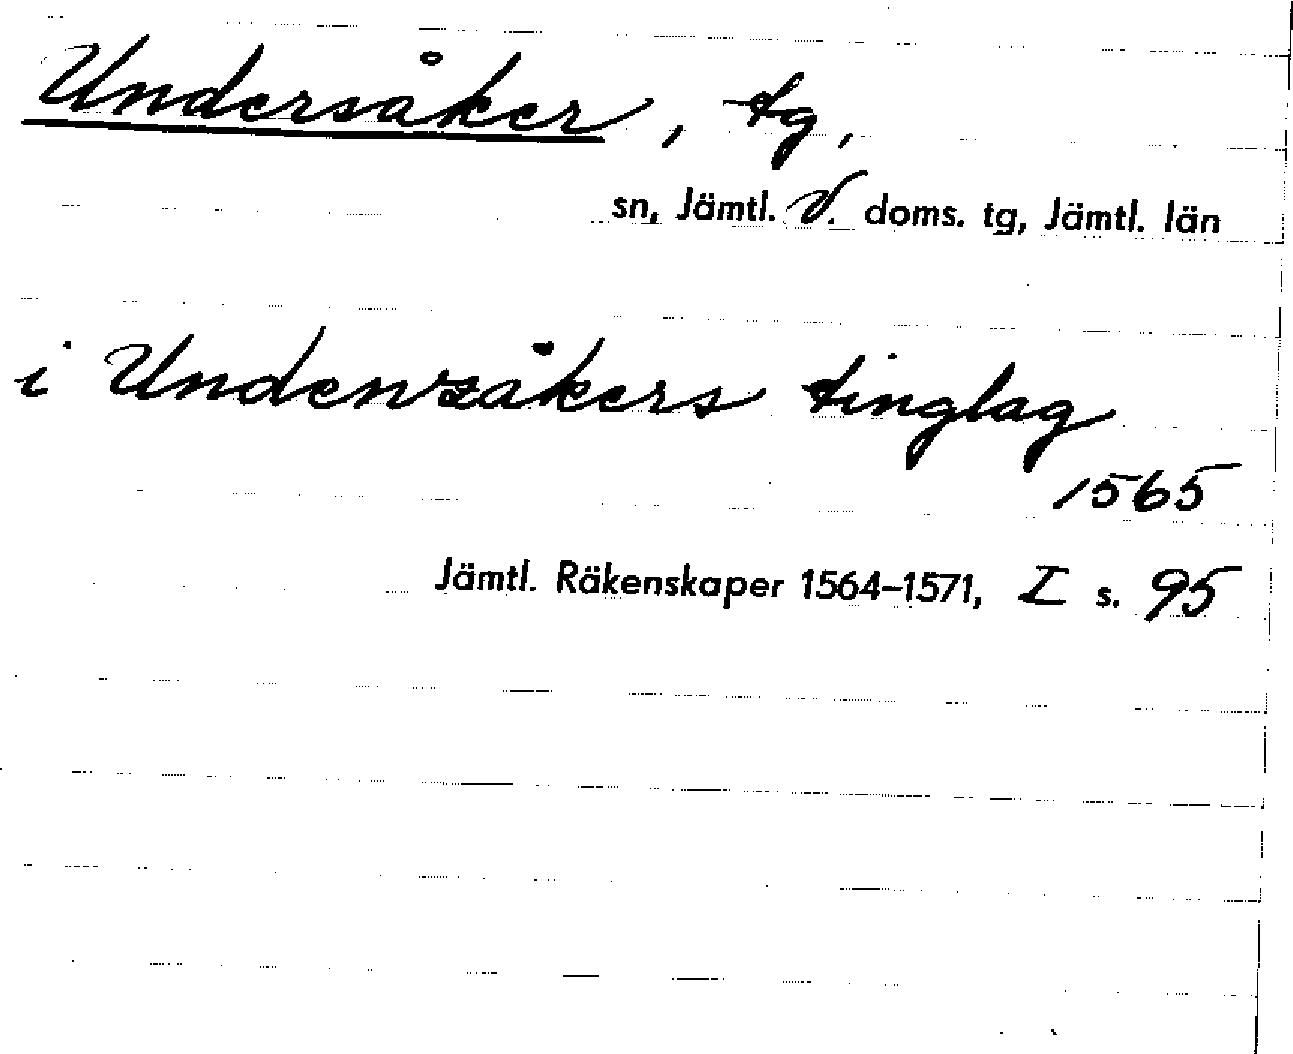 Undersåker, tg,
sn, Jämtl. V. doms. tg, Jämtl. län
i Undenrsåkers tinglag
1565
Jämtl. Räkenskaper 1564–1571, I s. 95